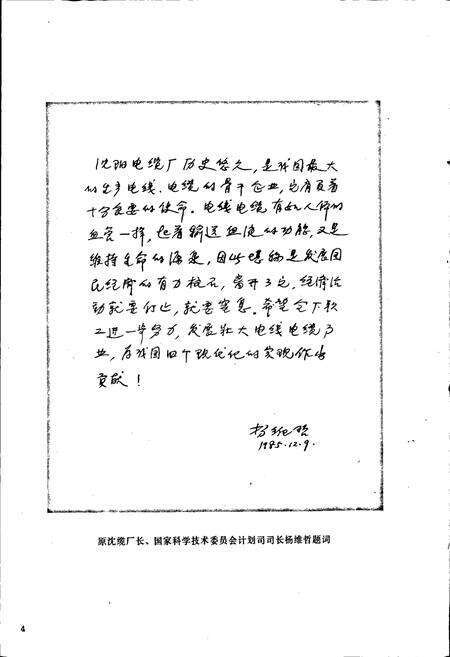 沈阳电缆厂历史悠久，是我国最大
的生产电线、电缆的骨干企业，它肩负着
十分重要的使命。电线电缆有如人体的
血管一样，起着输送血液的功能，又是
维持生命的源泉，因此堪称是发展国
民经济的有力柱石，离开了它，经济活
动就要停止，就要窒息。希望全厂职
工进一步努力，发展壮大电线电缆事
业，为我国四个现代化的实现作出
贡献！
杨维哲
1985.12.9.
原沈缆厂长、国家科学技术委员会计划司司长杨维哲题词
4